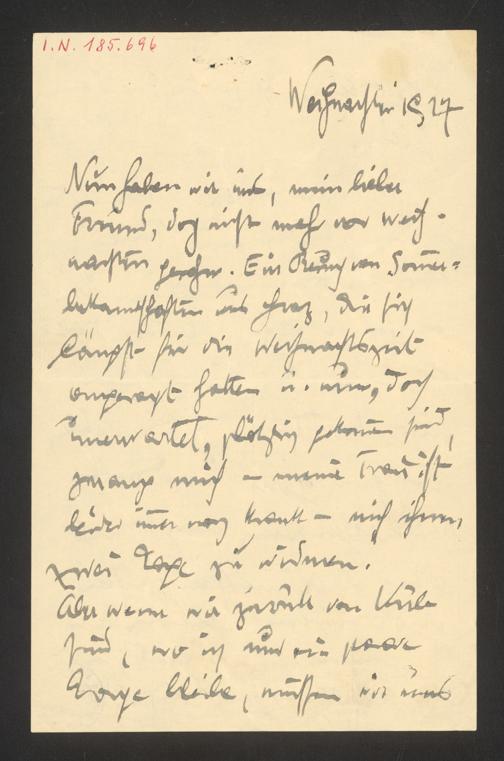 I.N. 185.696
Weihnachten 1927
Nun haben wir uns, mein lieber
Freund, doch nicht mehr vor Weih-
nachten gesehen. Ein Besuch von Sommer-
bekanntschaften aus Graz, die sich
längst für die Weihnachtszeit
angesagt hatten u. nun, doch
unerwartet, plötzlich gekommen sind,
zwang mich – meine Frau ist
leider immer noch krank – mich ihnen
zwei Tage zu widmen.
Aber wenn wir zurück von
sind, wo ich nur ein paar
Tage bleibe, müssen wir uns